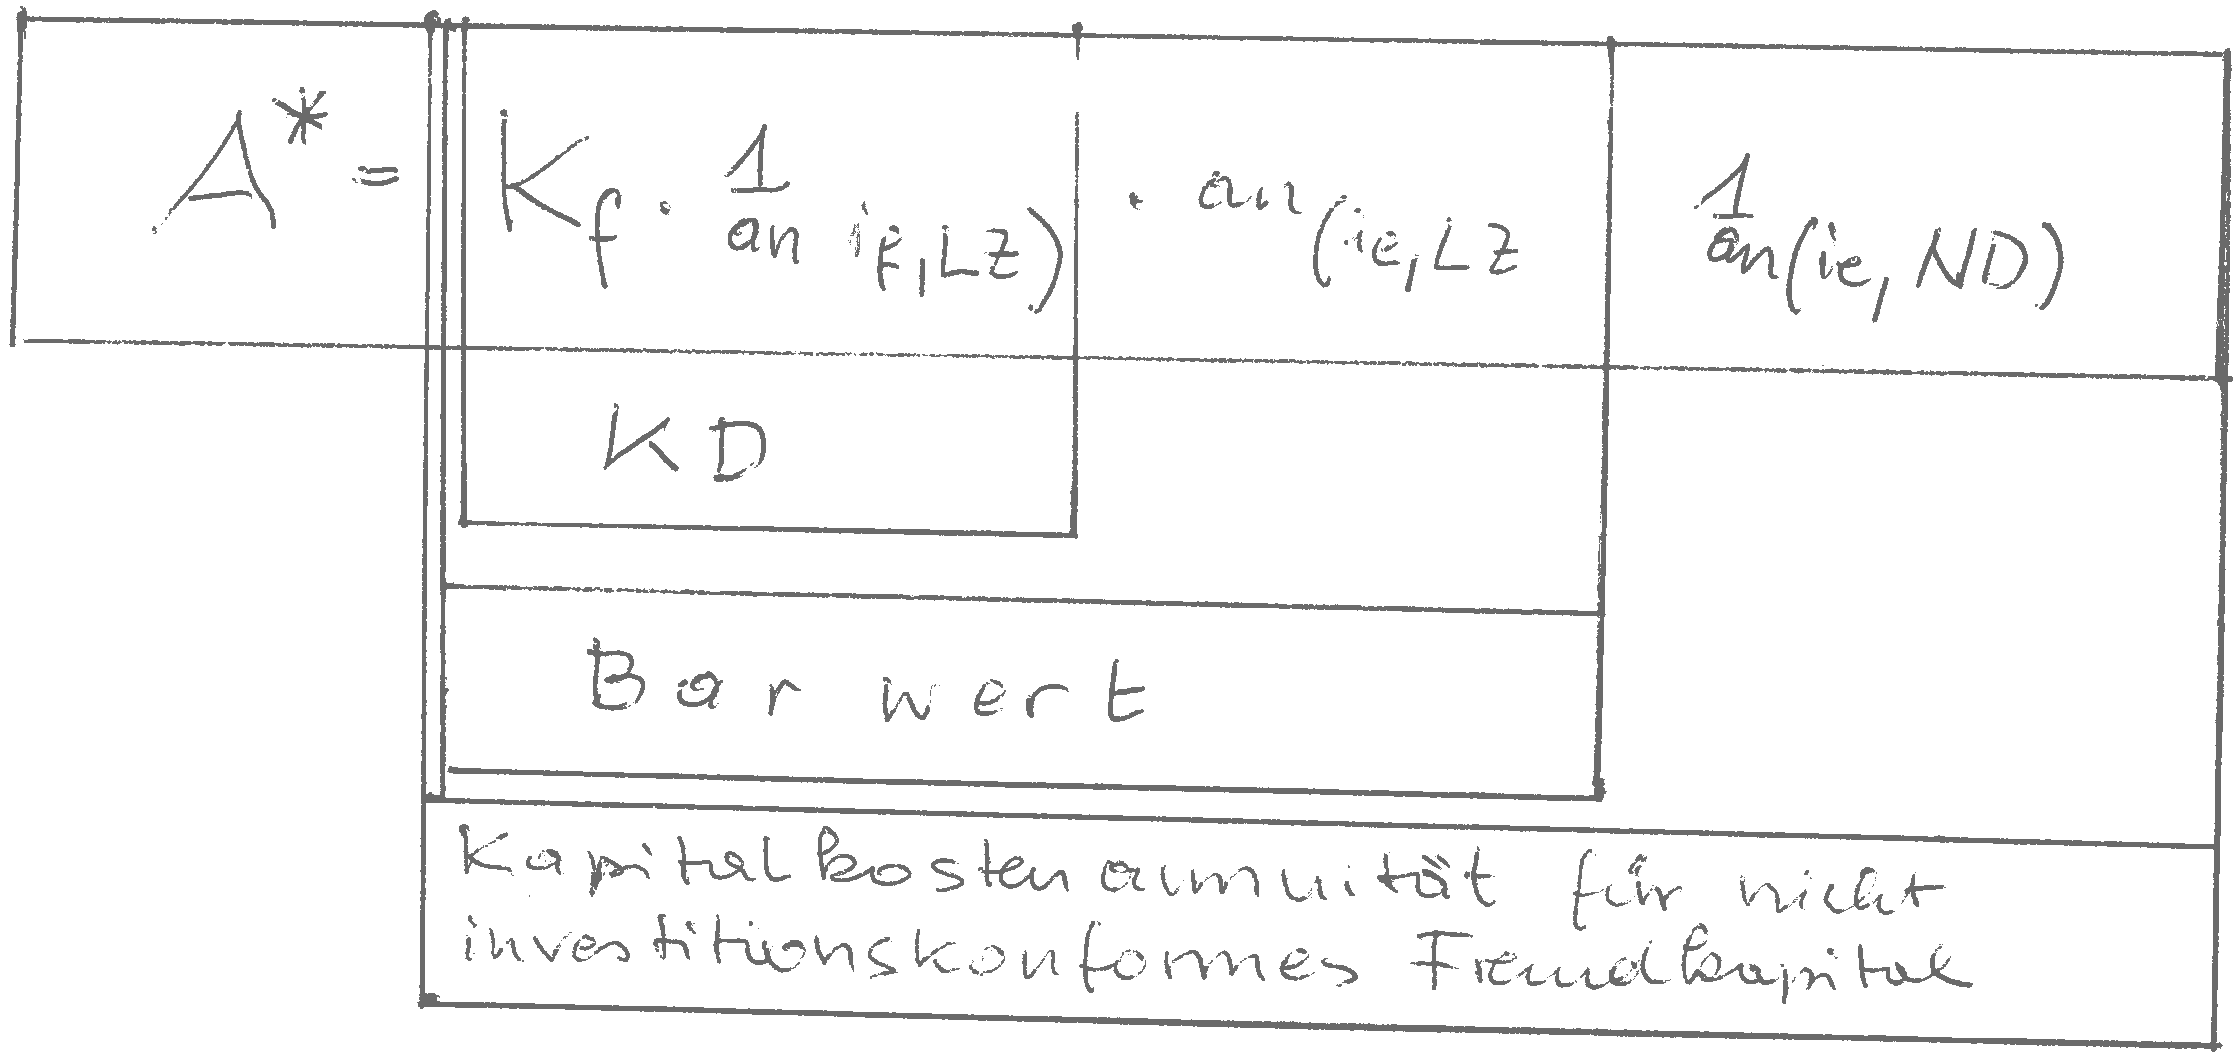 A* = K_f · 1/an i_F,LZ) · an (ie, LZ 1/an (ie, ND)
KD
Barwert
Kapitalkostenannuität für nicht
investitionskonformes Fremdkapital